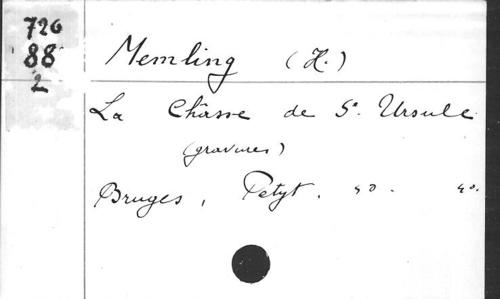 726
88
2
Memling (H.)
La Châsse de Ste. Ursule
(gravures)
Bruges, Petyt.